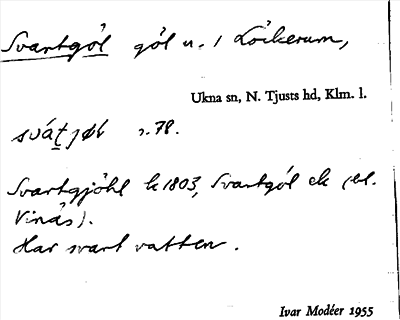 Svartgöl göl n. i Löckerum,
Ukna sn, N. Tjusts hd, Klm. l.
svát̠jøl s. 78.
Svartgjöhl k 1803, Svartgöl ek (bl.
Vinäs).
Har svart vatten.
Ivar Modéer 1955